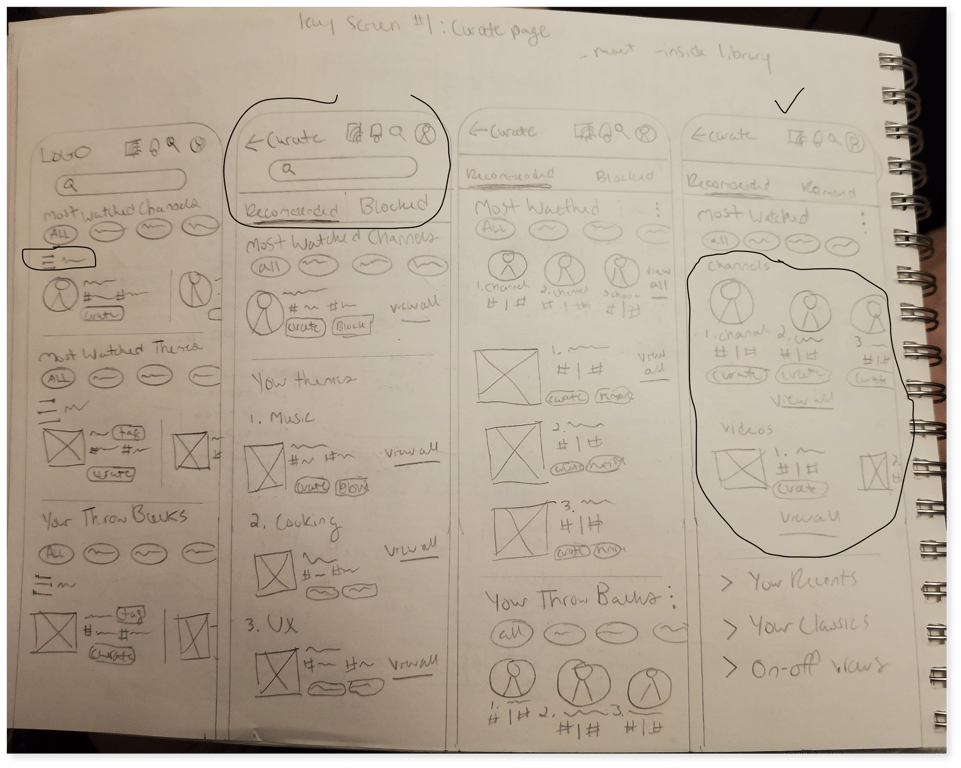 key Screen #1: Curate page
- most - inside library
LOGO
Most Watched Channels
ALL
curate
Most Watched Themes
ALL
tag
curate
Your Throw Backs
ALL
tag
curate
← Curate
Recomended Blocked
Most Watched Channels
all
# #
curate Block
view all
Your themes
1. Music
# #
curate Block
view all
2. Cooking
# #
view all
3. UX
# #
view all
← Curate
Recomended Blocked
Most Watched
All
1. channel 2. channel
# | # # | # # | #
view all
1.
# | #
curate
view all
2.
# | #
3.
# | #
Your Throw Backs
all
1. 2. 3.
# | # # | # # | #
← Curate
Recomended
Most Watched
all
Channels
1. channel 2. 3.
# | # # | # # | #
curate curate curate
view all
Videos
1. 2.
# | #
curate
view all
> Your Recents
> Your Classics
> On-off views